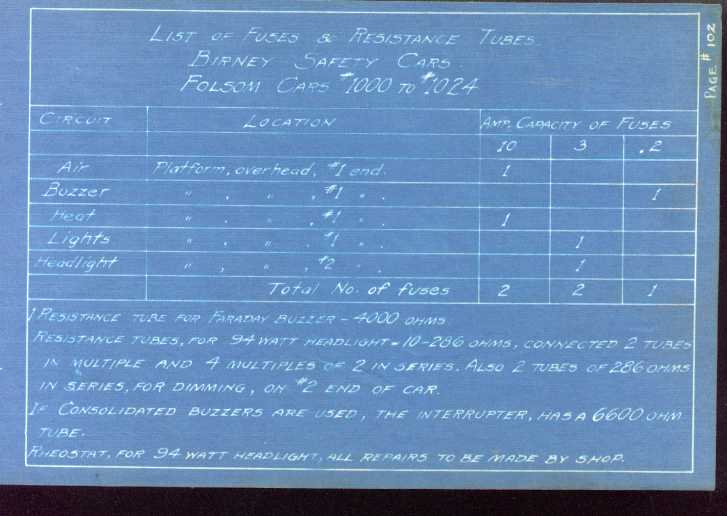 PAGE # 102
LIST OF FUSES & RESISTANCE TUBES
BIRNEY SAFETY CARS.
FOLSOM CARS #1000 TO #1024
CIRCUIT LOCATION AMP. CAPACITY OF FUSES
10 3 .2
Air Platform, overhead, #1 end. 1
Buzzer " , " , #1 " . 1
Heat " , " , #1 " . 1
Lights " , " , #1 " . 1
Headlight " , " , #2 " . 1
Total No. of fuses 2 2 1
1 RESISTANCE TUBE FOR FARADAY BUZZER - 4000 OHMS
RESISTANCE TUBES, FOR 94 WATT HEADLIGHT = 10-286 OHMS, CONNECTED 2 TUBES
IN MULTIPLE AND 4 MULTIPLES OF 2 IN SERIES. ALSO 2 TUBES OF 286 OHMS
IN SERIES, FOR DIMMING, ON #2 END OF CAR.
IF CONSOLIDATED BUZZERS ARE USED, THE INTERRUPTER, HAS A 6600 OHM
TUBE.
RHEOSTAT, FOR 94 WATT HEADLIGHT, ALL REPAIRS TO BE MADE BY SHOP.